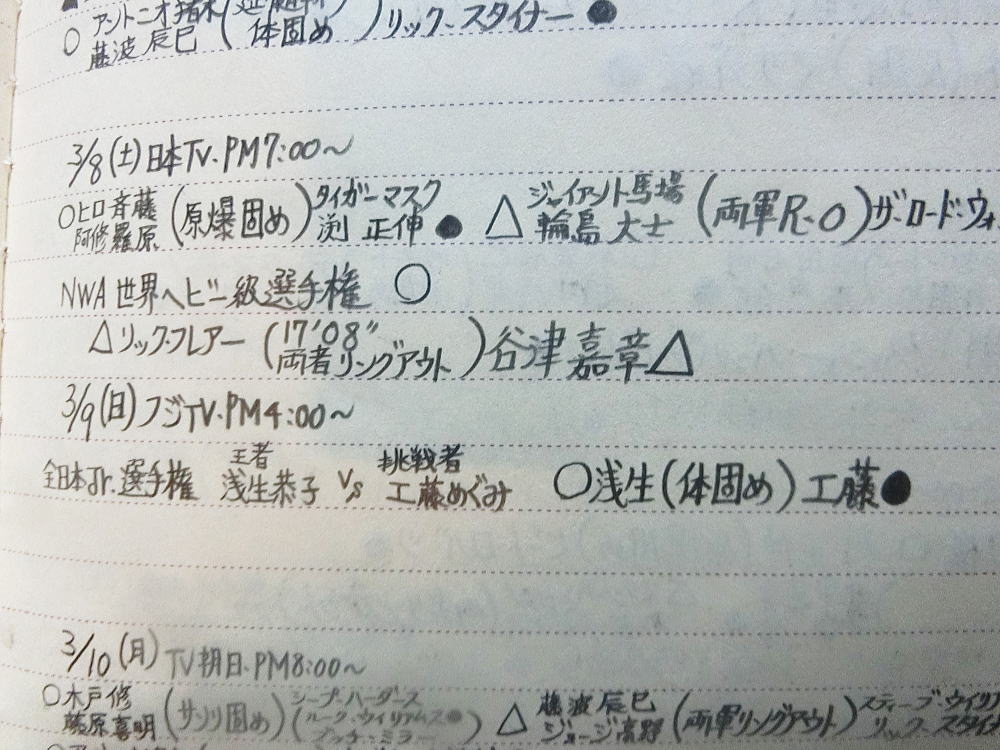 アントニオ猪木
○藤波 辰巳 (体固め) リック・スタイナー ●
3/8(土)日本TV.PM7:00~
○ヒロ斉藤 タイガーマスク ジャイアント馬場
阿修羅原 (原爆固め) 渕 正伸 ● △ 輪島 大士 (両軍R.O) ザ・ロード・ウォ
NWA世界ヘビー級選手権 ○
△リック・フレアー (17'08" 両者リングアウト) 谷津 嘉章△
3/9(日)フジTV.PM4:00~
王者 挑戦者
全日本Jr.選手権 浅生恭子 VS 工藤めぐみ ○浅生(体固め)工藤●
3/10(月) TV朝日.PM8:00~
○木戸修 シープ・ハーダース 藤波辰巳 スティーブ・ウィリア
藤原喜明 (サソリ固め) (ルーク・ウィリアムス● ブッチ・ミラー) △ ジョージ高野 (両軍リングアウト) リック・スタイナ